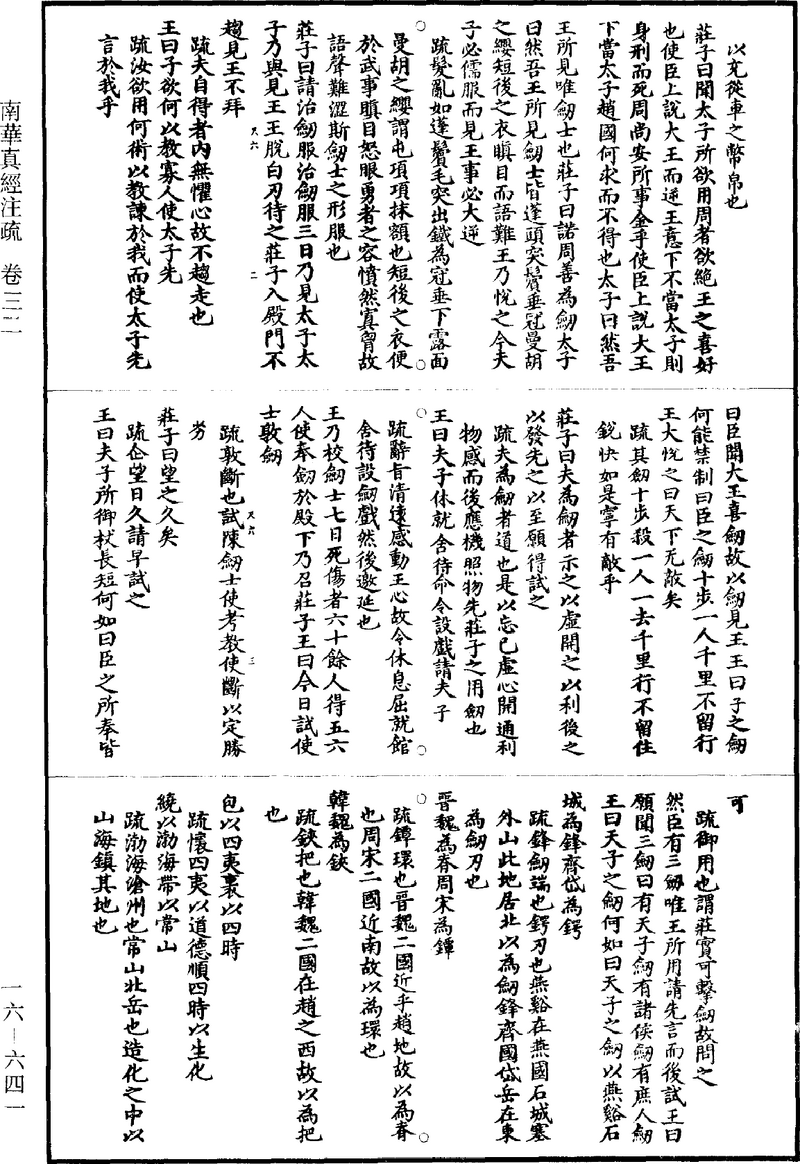 南華真經注疏　卷三二
一六—六四一
以充從車之幣帛也
莊子曰聞太子所欲用周者欲絕王之喜好
也使臣上說大王而逆王意下不當太子則
身刑而死周尚安所事金乎使臣上說大王
下當太子趙國何求而不得也太子曰然吾
王所見唯劒士也莊子曰諾周善為劒太子
曰然吾王所見劒士皆蓬頭突鬢垂冠曼胡
之纓短後之衣瞋目而語難王乃悅之今夫
子必儒服而見王事必大逆
疏髮亂如蓬鬢毛突出鐵為冠垂下露面
曼胡之纓謂屯項項抹額也短後之衣便
於武事瞋目怒眼勇者之容憤然寘胷故
語聲難澀斯劒士之形服也
莊子曰請治劒服治劒服三日乃見太子太
子乃與見王王脫白刃待之莊子入殿門不
又六
二
趨見王不拜
疏夫自得者內無懼心故不趨走也
王曰子欲何以教寡人使太子先
疏汝欲用何術以教諫於我而使太子先
言於我乎
曰臣聞大王喜劒故以劒見王王曰子之劒
何能禁制曰臣之劒十步一人千里不留行
王大悅之曰天下无敵矣
疏其劒十步殺一人一去千里行不留住
銳快如是寧有敵乎
莊子曰夫為劒者示之以虛開之以利後之
以發先之以至願得試之
疏夫為劒者道也是以忘己虛心開通利
物感而後應機照物先莊子之用劒也
王曰夫子休就舍待命令設戲請夫子
疏辭旨清遠感動王心故令休息屈就館
舍待設劒戲然後邀延也
王乃校劒士七日死傷者六十餘人得五六
人使奉劒於殿下乃召莊子王曰今日試使
士敦劒
疏敦斷也試陳劒士使考教使斷以定勝
又六
三
劣
莊子曰望之久矣
疏企望日久請早試之
王曰夫子所御杖長短何如曰臣之所奉皆
可
疏御用也謂莊實可擊劒故問之
然臣有三劒唯王所用請先言而後試王曰
願聞三劒曰有天子劒有諸侯劒有庶人劒
王曰天子之劒何如曰天子之劒以燕谿石
城為鋒齊岱為鍔
疏鋒劒端也鍔刃也燕谿在燕國石城塞
外山此地居北以為劒鋒齊國岱岳在東
為劒刃也
晉魏為脊周宋為鐔
疏鐔環也晉魏二國近乎趙地故以為脊
也周宋二國近南故以為環也
韓魏為鋏
疏鋏把也韓魏二國在趙之西故以為把
也
包以四夷裹以四時
疏懷四夷以道德順四時以生化
繞以渤海帶以常山
疏渤海滄州也常山北岳也造化之中以
山海鎮其地也